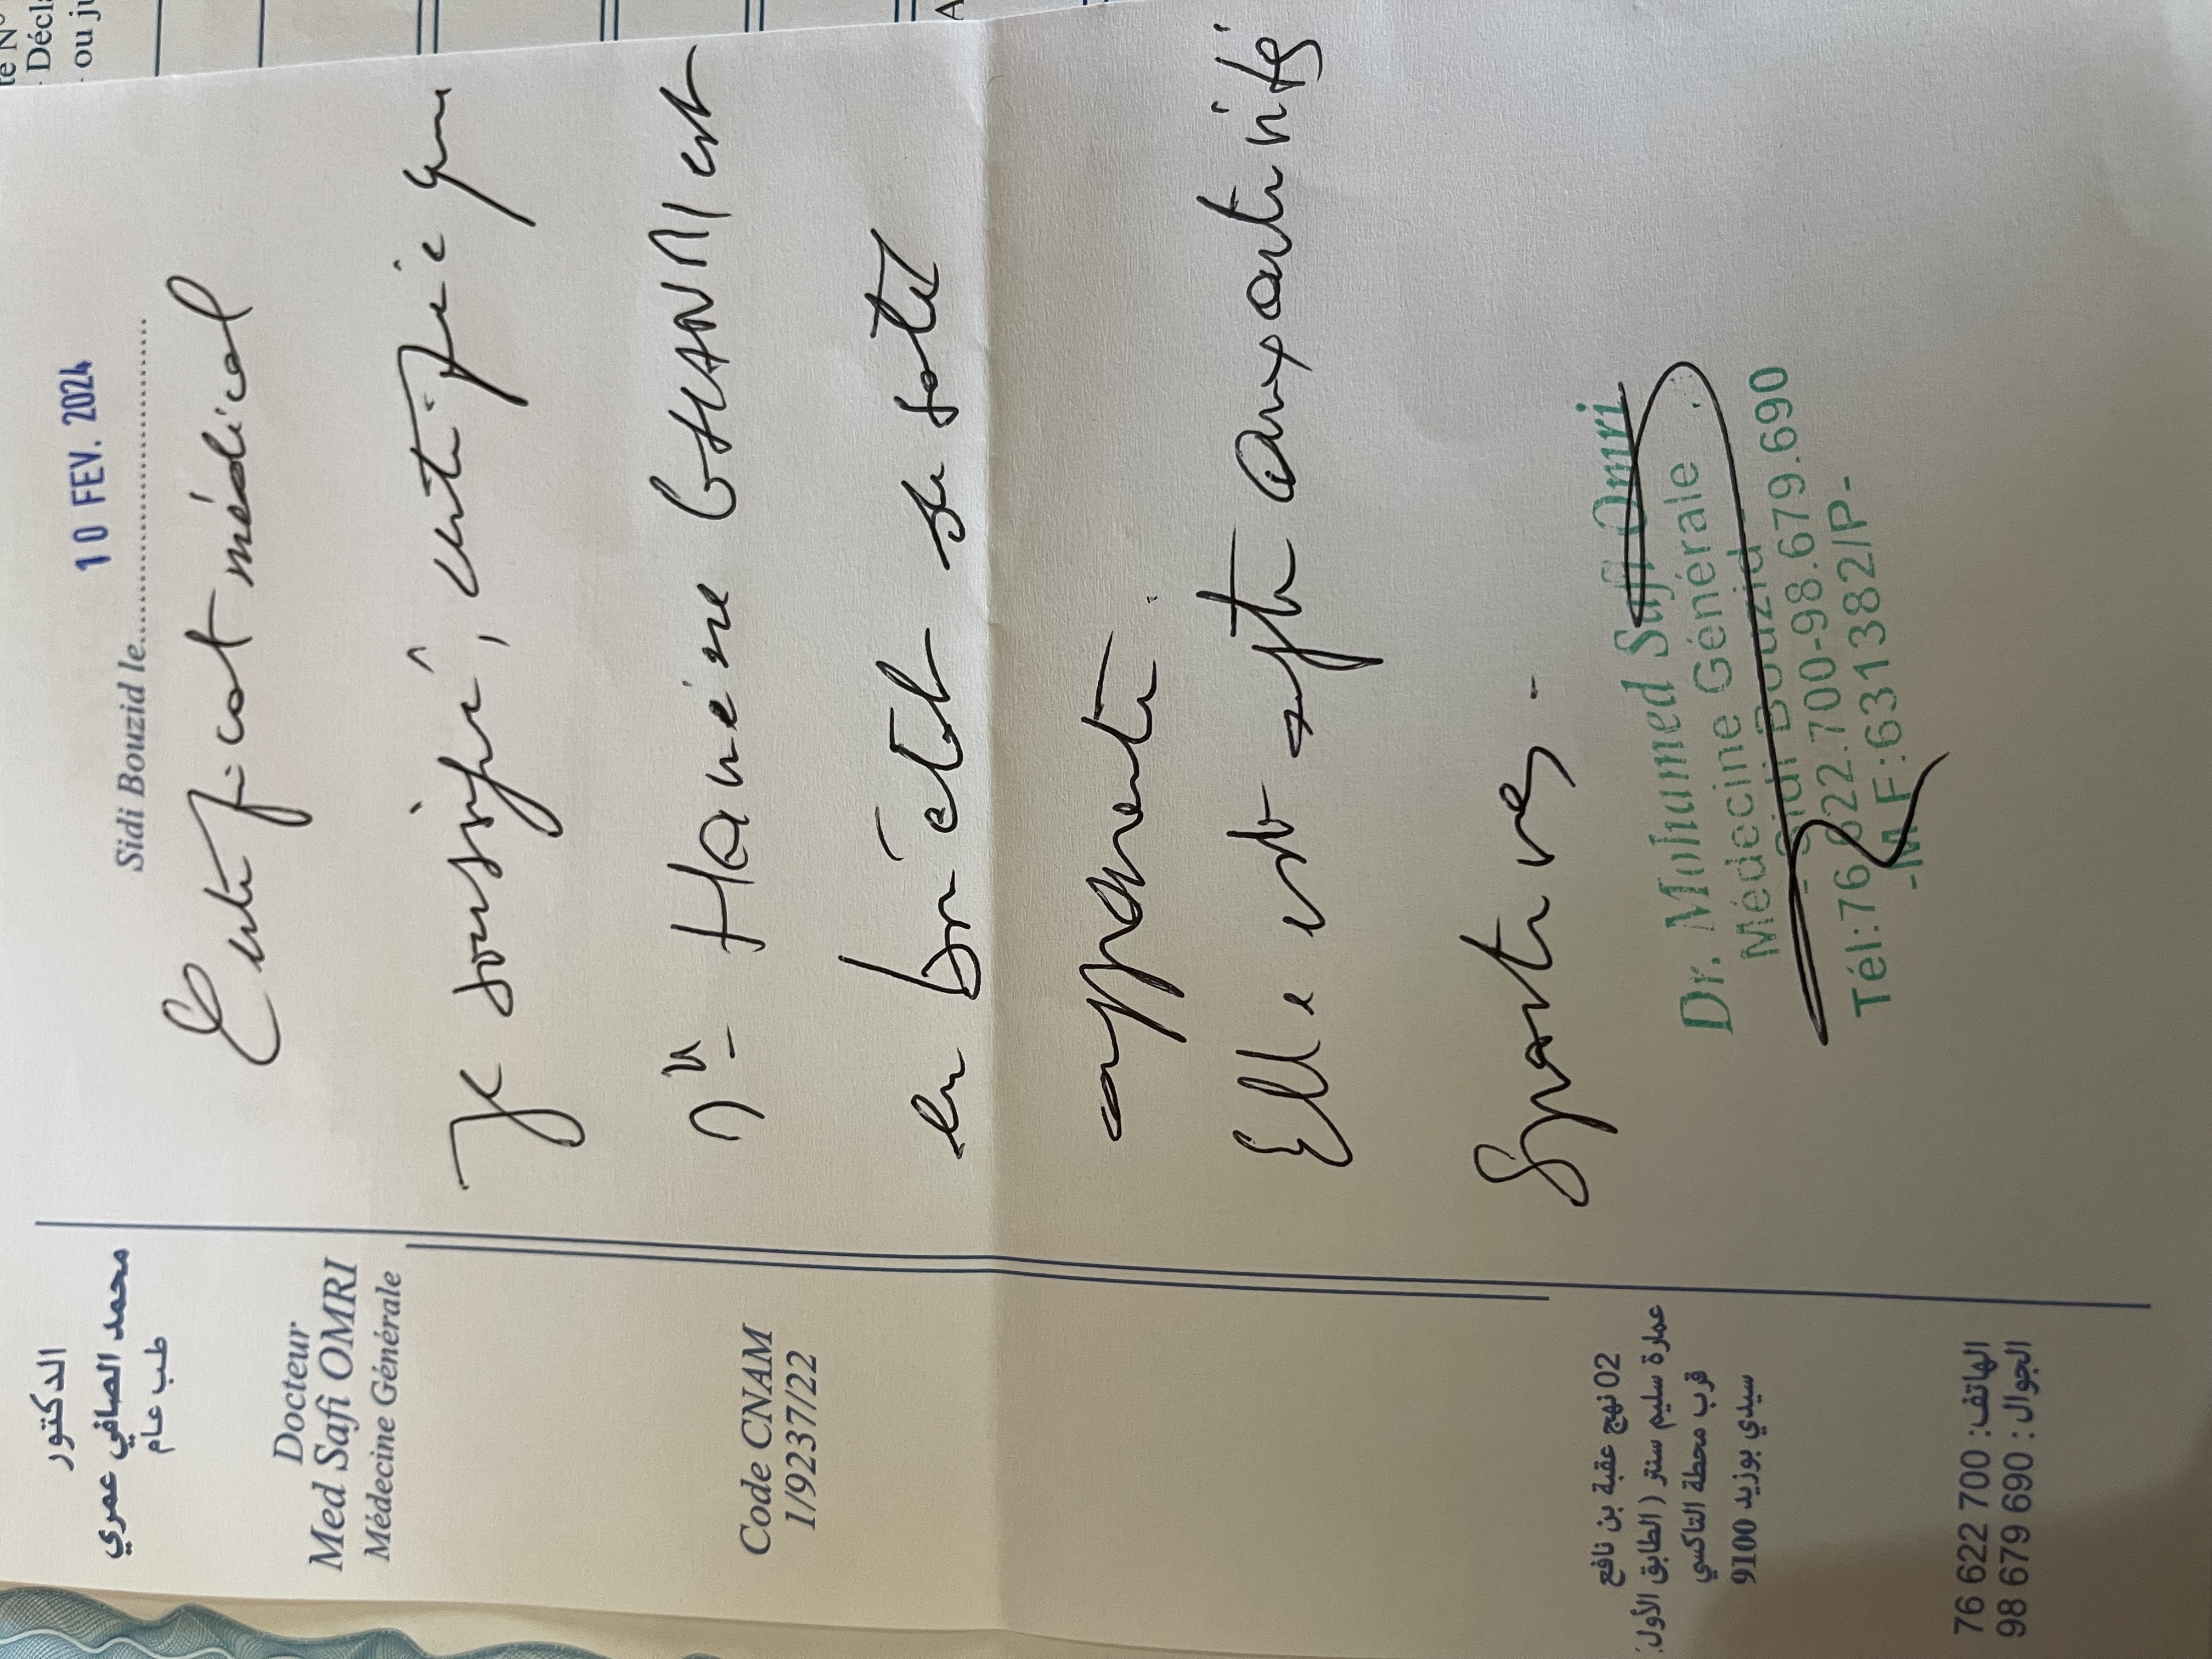 الدكتور
محمد الصافي عمري
طب عام
Docteur
Med Safi OMRI
Médecine Générale
Code CNAM
1/9237/22
02 نهج عقبة بن نافع
عمارة سليم سنتر ( الطابق الأول)
قرب محطة التاكسي
سيدي بوزيد 9100
الهاتف : 700 622 76
الجوال : 690 679 98
Sidi Bouzid le
10 FEV. 2024
Certificat médical
Je soussigné, certifie que
Hanène GHANMI est
en bon état de santé
apparente.
Elle est apte aux activités
Sportives.
Dr. Mohamed Safi Omri
Médecine Générale
Sidi Bouzid
Tél:76.622.700-98.679.690
-M.F:631382/P-
te N°
Décla
ou ju